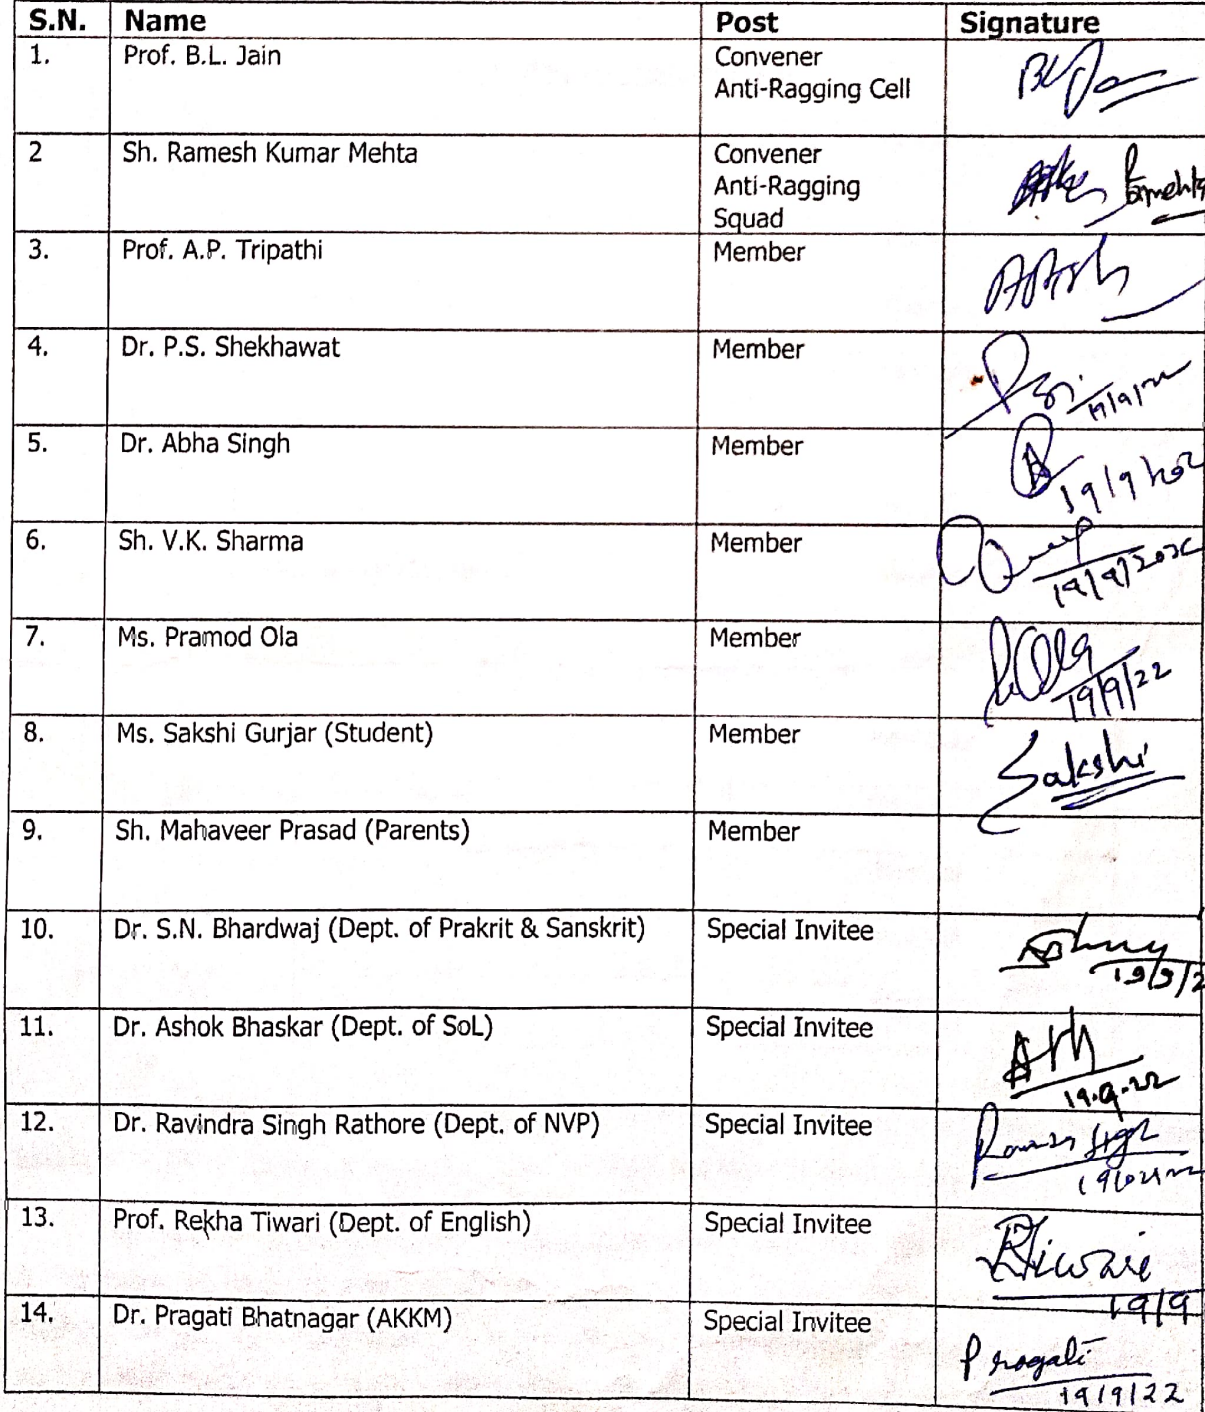 S.N. Name Post Signature
1. Prof. B.L. Jain Convener
Anti-Ragging Cell
2 Sh. Ramesh Kumar Mehta Convener
Anti-Ragging
Squad
3. Prof. A.P. Tripathi Member
4. Dr. P.S. Shekhawat Member
5. Dr. Abha Singh Member
19/9/202
6. Sh. V.K. Sharma Member
7. Ms. Pramod Ola Member
19/9/22
8. Ms. Sakshi Gurjar (Student) Member Sakshi
9. Sh. Mahaveer Prasad (Parents) Member
10. Dr. S.N. Bhardwaj (Dept. of Prakrit & Sanskrit) Special Invitee
19/9/2
11. Dr. Ashok Bhaskar (Dept. of SoL) Special Invitee
19.9.22
12. Dr. Ravindra Singh Rathore (Dept. of NVP) Special Invitee
13. Prof. Rekha Tiwari (Dept. of English) Special Invitee RTiwarie
19/9
14. Dr. Pragati Bhatnagar (AKKM) Special Invitee Pragati
19/9/22